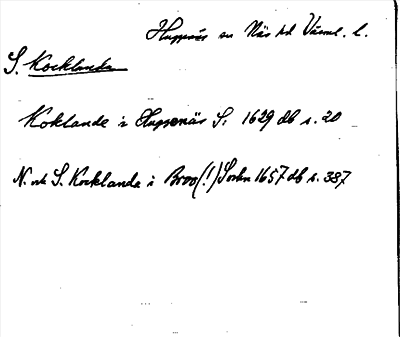 Huggnäs sn Näs hd Värml. l.
S. Kocklanda
Koklande i Huggenäs S. 1629 db s. 20
N. och S. Kocklanda i Broo (!) Sockn 1657 db s. 387